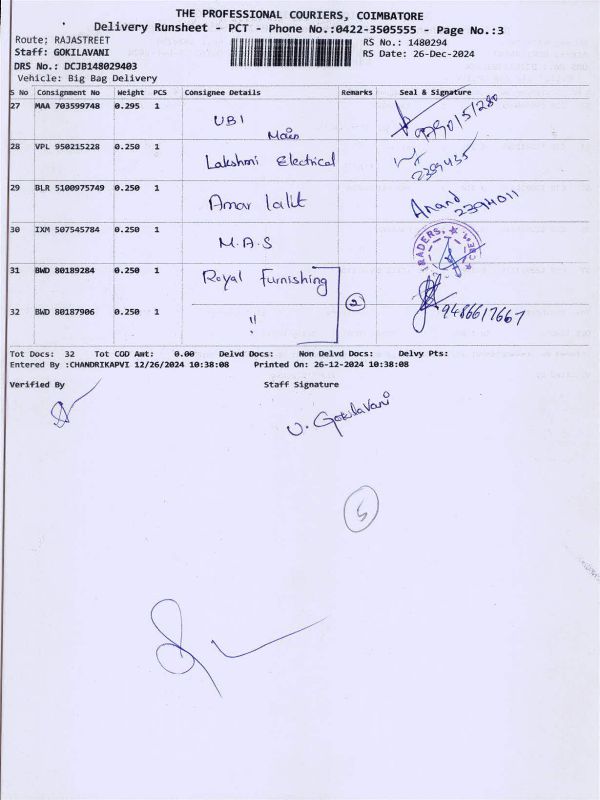 THE PROFESSIONAL COURIERS, COIMBATORE
Delivery Runsheet - PCT - Phone No.:0422-3505555 - Page No.:3
Route: RAJASTREET RS No.: 1480294
Staff: GOKILAVANI RS Date: 26-Dec-2024
DRS No.: DCJB148029403
Vehicle: Big Bag Delivery
S No Consignment No Weight PCS Consignee Details Remarks Seal & Signature
27 MAA 703599748 0.295 1 UBI
Main
28 VPL 950215228 0.250 1 Lakshmi Electrical 2399435
29 BLR 5100975749 0.250 1 Amar lalit Anand 2394011
30 IXM 507545784 0.250 1 M.A.S TRADERS
31 BWD 80189284 0.250 1 Royal Furnishing
2
32 BWD 80187906 0.250 1 " 9486617667
Tot Docs: 32 Tot COD Amt: 0.00 Delvd Docs: Non Delvd Docs: Delvy Pts:
Entered By :CHANDRIKAPVI 12/26/2024 10:38:08 Printed On: 26-12-2024 10:38:08
Verified By Staff Signature
U. Gokilavani
5